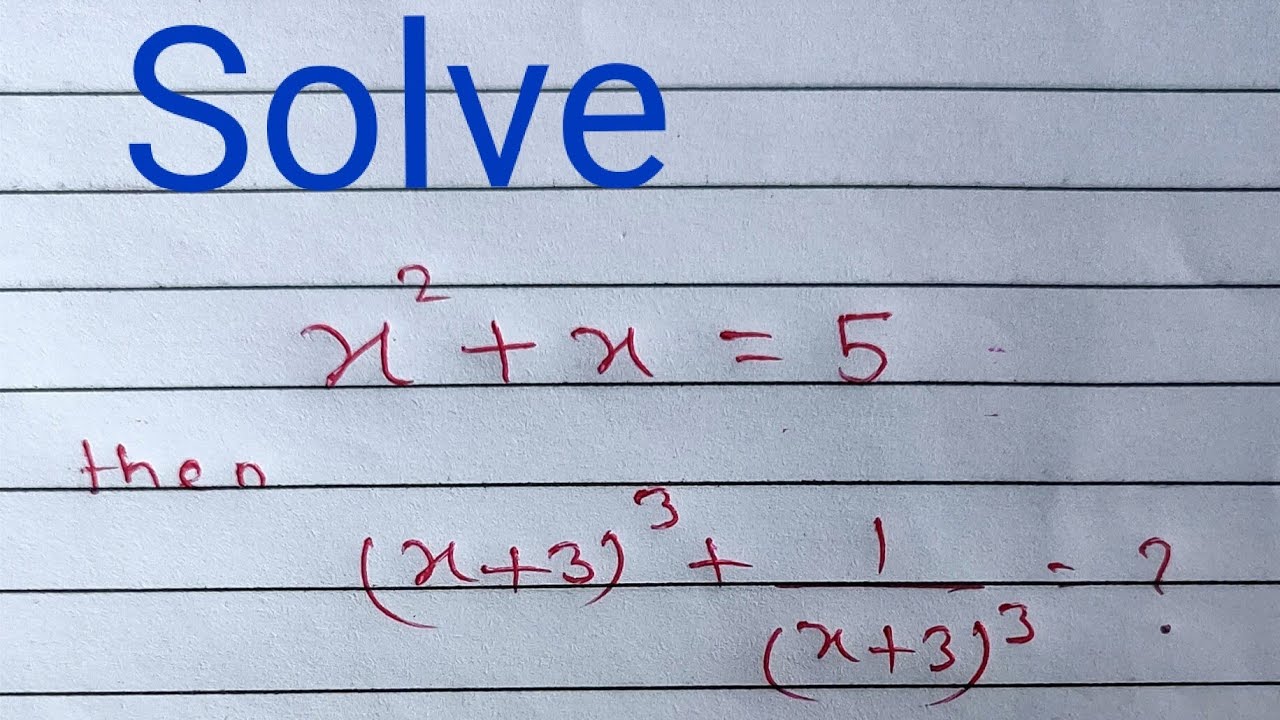 Solve
x² + x = 5
then
(x+3)³ + 1/(x+3)³ = ?